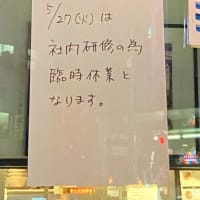 5/27(火)は
社内研修の為
臨時休業と
なります。